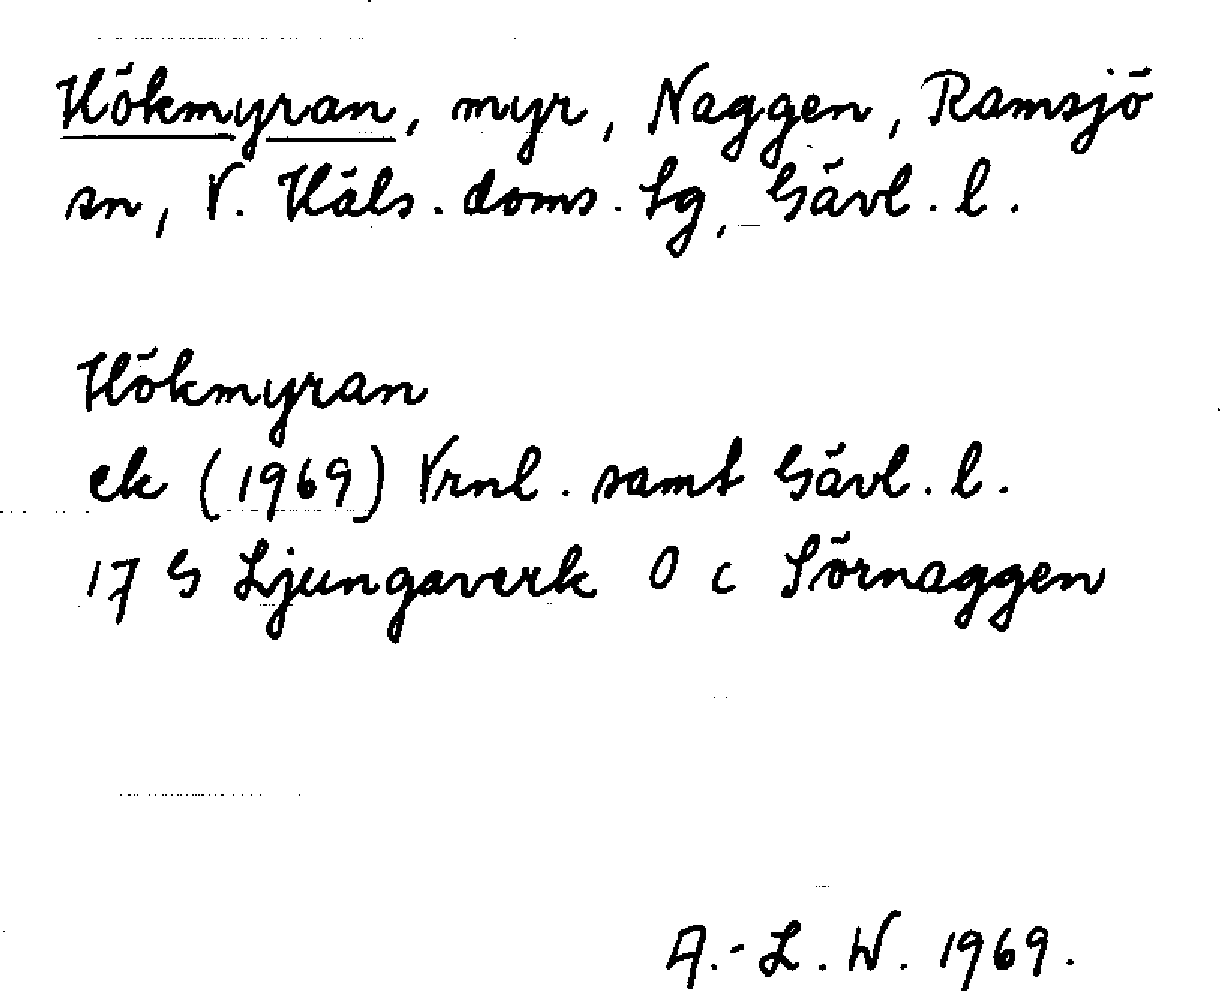 Hökmyran, myr, Naggen, Ramsjö
sn, V. Häls. doms. Lg, Gävl. l.
Hökmyran
ek (1969) Vrnl. samt Gävl. l.
17 G Ljungaverk O c Sörnaggen
A.-L. W. 1969.